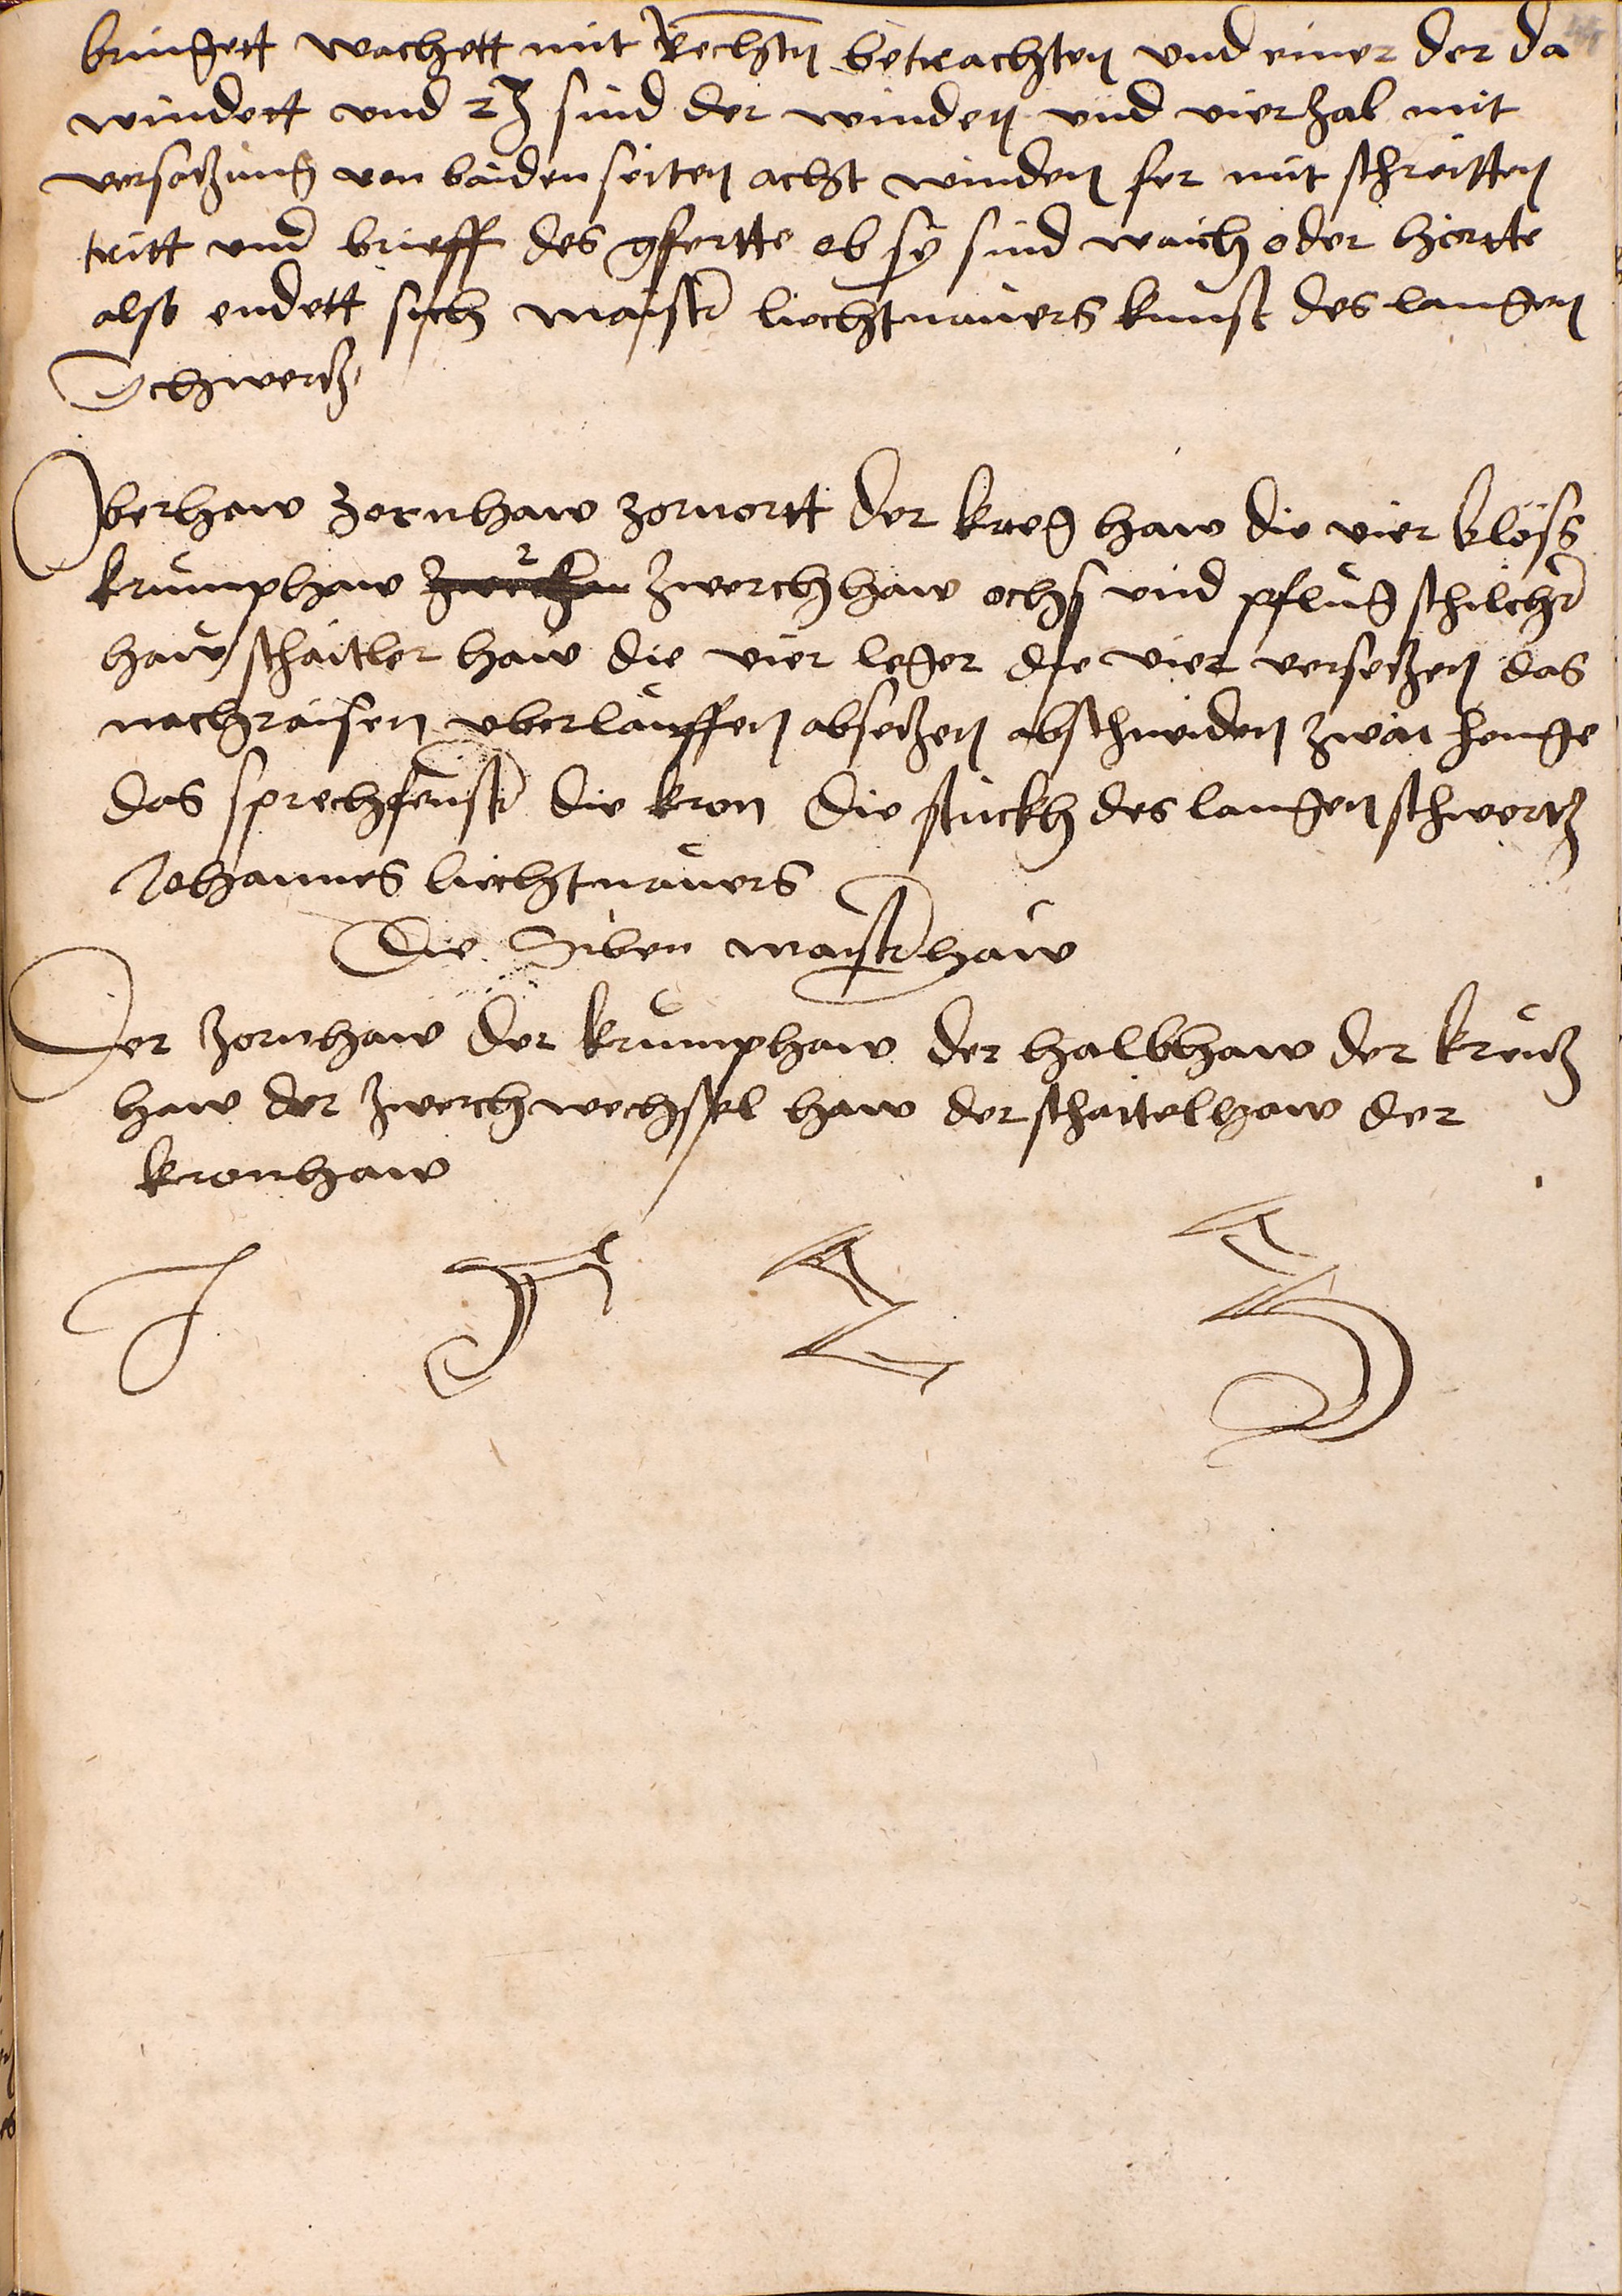 bringett wachett mit Rechtn̄ betrachten vnd einer der da
windett vnd 23 sind der winden vnd vierzal mit
versatzung von baiden seiten acht winden fer mit schreitten
tritt vnd brieff des gfertte ob sÿ sind waich oder hörtte
also endett sich maistr̄ liechtnauers kunst des langen
Schwertz
Oberhaw zornhaw zornortt der krieg haw die vier blöss
krůmphaw zwerchhaw ochs vnd pflůg schilchr̄
haw schaitler haw die vier leger die vier versetzen das
nachraisen vberlauffen absetzen abschneiden zwai henge
das sprechfenstr̄ die kron die stuckh des langen schwertz
Johannes liechtnauers
Die Siben maistr̄haw
Der zornhaw der krůmphaw der halbhaw der kreutz
haw der zwerchwechssel haw der schaitelhaw der
kronhaw